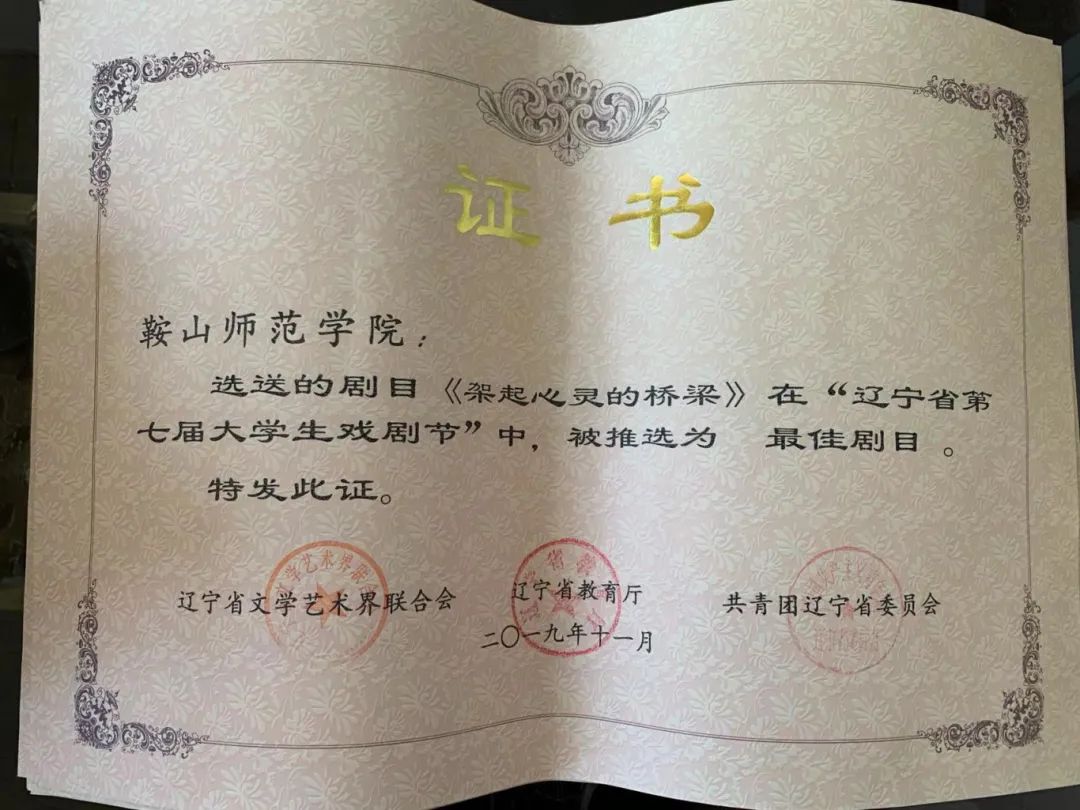 证 书
鞍山师范学院：
选送的剧目《架起心灵的桥梁》在“辽宁省第
七届大学生戏剧节”中，被推选为 最佳剧目 。
特发此证。
辽宁省文学艺术界联合会 辽宁省教育厅 共青团辽宁省委员会
二〇一九年十一月